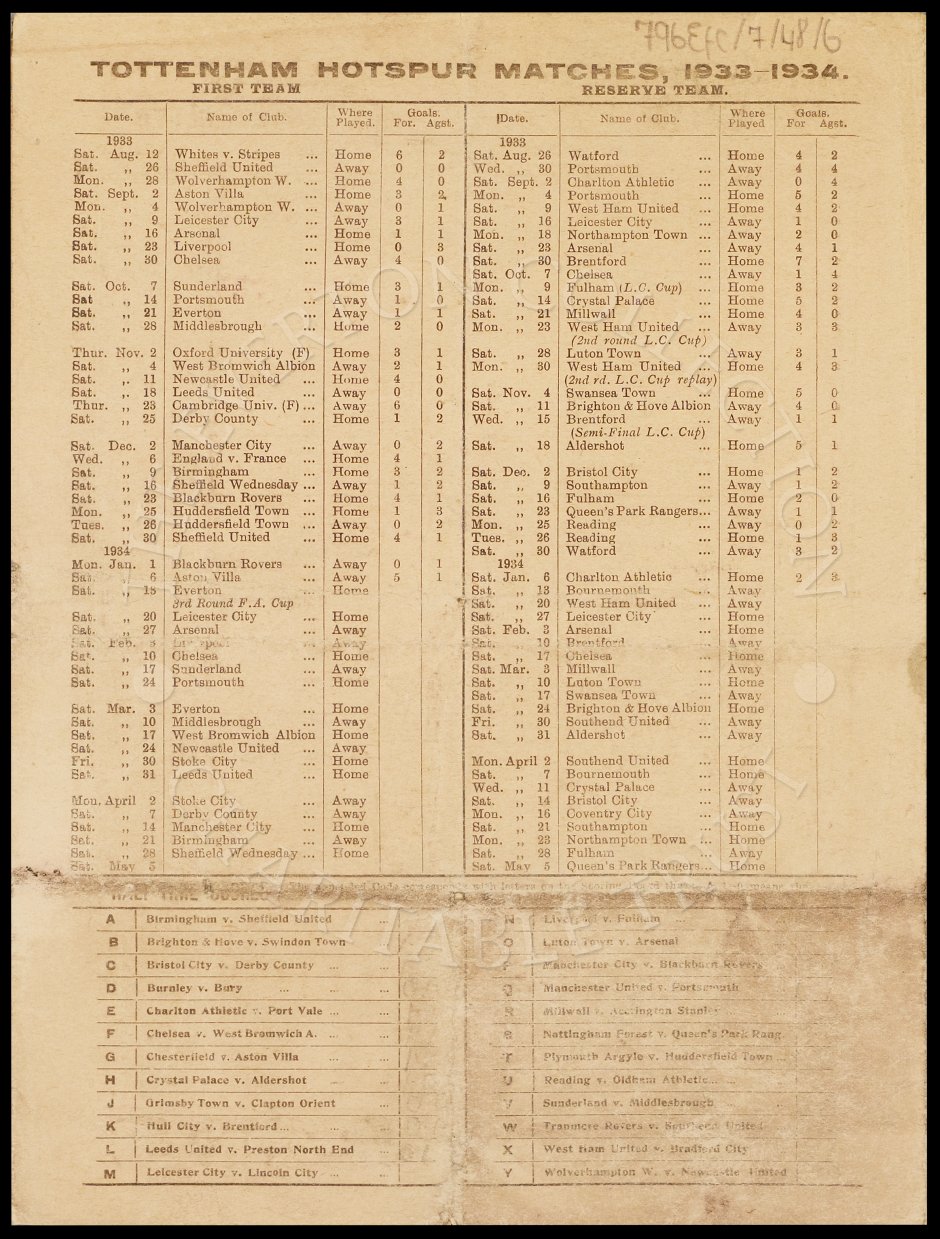 796Efc/7/48/6
TOTTENHAM HOTSPUR MATCHES, 1933–1934.
FIRST TEAM
Date. Name of Club. Where Played. Goals. For. Agst.
1933
Sat. Aug. 12 Whites v. Stripes ... Home 6 2
Sat. ,, 26 Sheffield United ... Away 0 0
Mon. ,, 28 Wolverhampton W. ... Home 4 0
Sat. Sept. 2 Aston Villa ... Home 3 2
Mon. ,, 4 Wolverhampton W. ... Away 0 1
Sat. ,, 9 Leicester City ... Away 3 1
Sat. ,, 16 Arsenal ... Home 1 1
Sat. ,, 23 Liverpool ... Home 0 3
Sat. ,, 30 Chelsea ... Away 4 0
Sat. Oct. 7 Sunderland ... Home 3 1
Sat ,, 14 Portsmouth ... Away 1 0
Sat. ,, 21 Everton ... Away 1 1
Sat. ,, 28 Middlesbrough ... Home 2 0
Thur. Nov. 2 Oxford University (F) Home 3 1
Sat. ,, 4 West Bromwich Albion Away 2 1
Sat. ,. 11 Newcastle United ... Home 4 0
Sat. ,. 18 Leeds United ... Away 0 0
Thur. ,, 23 Cambridge Univ. (F) ... Away 6 0
Sat. ,, 25 Derby County ... Home 1 2
Sat. Dec. 2 Manchester City ... Away 0 2
Wed. ,, 6 England v. France ... Home 4 1
Sat. ,, 9 Birmingham ... Home 3 2
Sat. ,, 16 Sheffield Wednesday ... Away 1 2
Sat. ,, 23 Blackburn Rovers ... Home 4 1
Mon. ,, 25 Huddersfield Town ... Home 1 3
Tues. ,, 26 Huddersfield Town ... Away 0 2
Sat. ,, 30 Sheffield United ... Home 4 1
1934
Mon. Jan. 1 Blackburn Rovers ... Away 0 1
Sat. ,, 6 Aston Villa ... Away 5 1
Sat. ,, 13 Everton ... Home
3rd Round F.A. Cup
Sat. ,, 20 Leicester City ... Home
Sat. ,, 27 Arsenal ... Away
Sat. Feb. 3 Liverpool ... Away
Sat. ,, 10 Chelsea ... Home
Sat. ,, 17 Sunderland ... Away
Sat. ,, 24 Portsmouth ... Home
Sat. Mar. 3 Everton ... Home
Sat. ,, 10 Middlesbrough ... Away
Sat. ,, 17 West Bromwich Albion Home
Sat. ,, 24 Newcastle United ... Away
Fri. ,, 30 Stoke City ... Home
Sat. ,, 31 Leeds United ... Home
Mon. April 2 Stoke City ... Away
Sat. ,, 7 Derby County ... Away
Sat. ,, 14 Manchester City ... Home
Sat. ,, 21 Birmingham ... Away
Sat. ,, 28 Sheffield Wednesday ... Home
Sat. May 5
RESERVE TEAM.
Date. Name of Club. Where Played Goals. For Agst.
1933
Sat. Aug. 26 Watford ... Home 4 2
Wed. ,, 30 Portsmouth ... Away 4 4
Sat. Sept. 2 Charlton Athletic ... Away 0 4
Mon. ,, 4 Portsmouth ... Home 5 2
Sat. ,, 9 West Ham United ... Home 4 2
Sat. ,, 16 Leicester City ... Away 1 0
Mon. ,, 18 Northampton Town ... Away 2 0
Sat. ,, 23 Arsenal ... Away 4 1
Sat. ,, 30 Brentford ... Home 7 2
Sat. Oct. 7 Chelsea ... Away 1 4
Mon. ,, 9 Fulham (L.C. Cup) ... Home 3 2
Sat. ,, 14 Crystal Palace ... Home 5 2
Sat. ,, 21 Millwall ... Home 4 0
Mon. ,, 23 West Ham United ... Away 3 3
(2nd round L.C. Cup)
Sat. ,, 28 Luton Town ... Away 3 1
Mon. ,, 30 West Ham United ... Home 4 3
(2nd rd. L.C. Cup replay)
Sat. Nov. 4 Swansea Town ... Home 5 0
Sat. ,, 11 Brighton & Hove Albion Away 4 0
Wed. ,, 15 Brentford ... Away 1 1
(Semi-Final L.C. Cup)
Sat. ,, 18 Aldershot ... Home 5 1
Sat. Dec. 2 Bristol City ... Home 1 2
Sat. ,, 9 Southampton ... Away 1 2
Sat. ,, 16 Fulham ... Home 2 0
Sat. ,, 23 Queen's Park Rangers... Away 1 1
Mon. ,, 25 Reading ... Away 0 2
Tues. ,, 26 Reading ... Home 1 3
Sat. ,, 30 Watford ... Away 3 2
1934
Sat. Jan. 6 Charlton Athletic ... Home 2 3
Sat. ,, 13 Bournemouth ... Away
Sat. ,, 20 West Ham United ... Away
Sat. ,, 27 Leicester City ... Home
Sat. Feb. 3 Arsenal ... Home
Sat. ,, 10 Brentford ... Away
Sat. ,, 17 Chelsea ... Home
Sat. Mar. 3 Millwall ... Away
Sat. ,, 10 Luton Town ... Home
Sat. ,, 17 Swansea Town ... Away
Sat. ,, 24 Brighton & Hove Albion Home
Fri. ,, 30 Southend United ... Away
Sat. ,, 31 Aldershot ... Away
Mon. April 2 Southend United ... Home
Sat. ,, 7 Bournemouth ... Home
Wed. ,, 11 Crystal Palace ... Away
Sat. ,, 14 Bristol City ... Away
Mon. ,, 16 Coventry City ... Away
Sat. ,, 21 Southampton ... Home
Mon. ,, 23 Northampton Town ... Home
Sat. ,, 28 Fulham ... Away
Sat. May 5 Queen's Park Rangers... Home
HALF TIME SCORES
A Birmingham v. Sheffield United ...
B Brighton & Hove v. Swindon Town
C Bristol City v. Derby County ... ...
D Burnley v. Bury ... ... ...
E Charlton Athletic v. Port Vale ... ...
F Chelsea v. West Bromwich A. ... ...
G Chesterfield v. Aston Villa ... ...
H Crystal Palace v. Aldershot ... ...
J Grimsby Town v. Clapton Orient ...
K Hull City v. Brentford ... ... ...
L Leeds United v. Preston North End ...
M Leicester City v. Lincoln City ... ...
N Liverpool v. Fulham ...
O Luton Town v. Arsenal
P Manchester City v. Blackburn Rovers
Q Manchester United v. Portsmouth
R Millwall v. Accrington Stanley
S Nottingham Forest v. Queen's Park Rang.
T Plymouth Argyle v. Huddersfield Town ...
U Reading v. Oldham Athletic... ...
V Sunderland v. Middlesbrough
W Tranmere Rovers v. Southend United
X West Ham United v. Bradford City
Y Wolverhampton W. v. Newcastle United